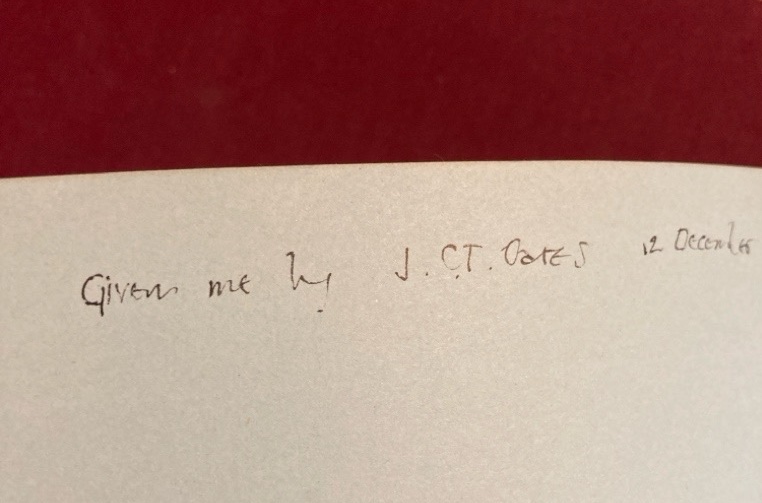 Given me by J.C.T. Oates 12 December